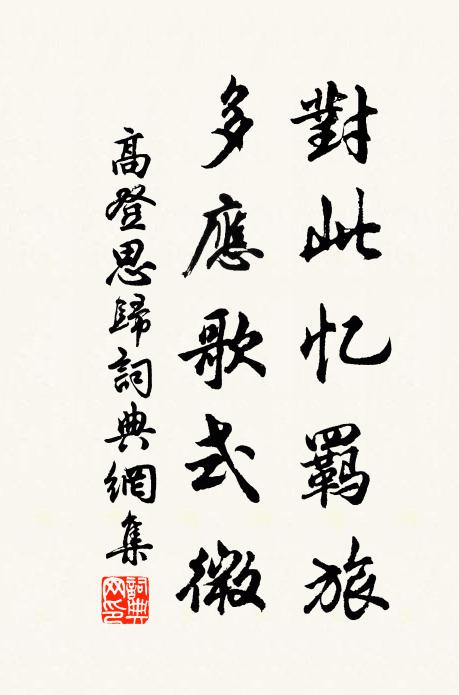 對此忆羈旅
多應歌式微
高登思歸詞典網集
詞典
網印